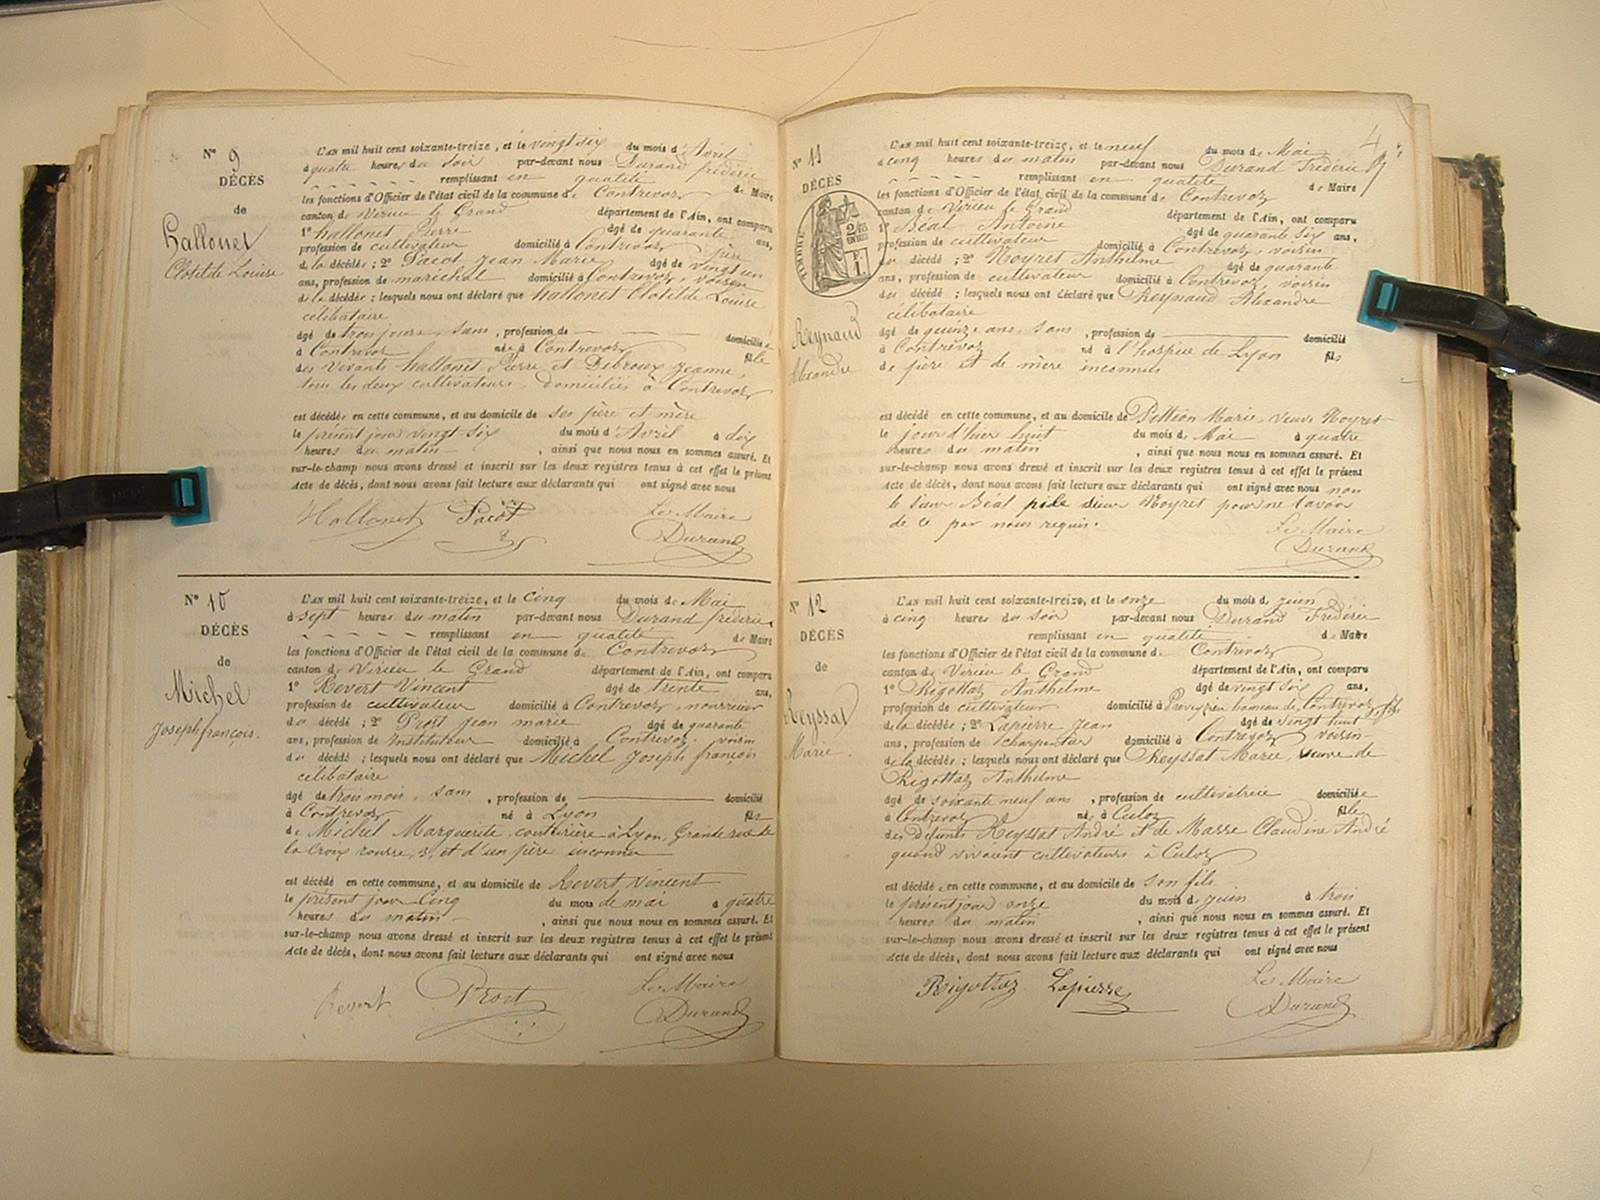 N° 9
DÉCÈS
de
hallonet
Clotilde Louise
L'AN mil huit cent soixante-treize, et le vingt six du mois d'Avril
à quatre heures du soir par-devant nous Durand frédéric
remplissant en qualité de Maire
les fonctions d'Officier de l'état civil de la commune de Contrevoz
canton de Virieu le Grand département de l'Ain, ont comparu
1° hallonet Pierre âgé de quarante ans,
profession de cultivateur domicilié à Contrevoz, père
de la décédée ; 2° Pacot Jean Marie âgé de vingt un
ans, profession de maréchal domicilié à Contrevoz, voisin
de la décédée ; lesquels nous ont déclaré que hallonet Clotilde Louise
célibataire
âgé de trois jours, sans , profession de domiciliée
à Contrevoz née à Contrevoz fille
des vivants hallonet Pierre et Debroux Jeanne,
tous les deux cultivateurs, domiciliés à Contrevoz
est décédée en cette commune, et au domicile de ses père et mère
le présent jour vingt six du mois d'Avril à dix
heures du matin , ainsi que nous nous en sommes assuré. Et
sur-le-champ nous avons dressé et inscrit sur les deux registres tenus à cet effet le présent
Acte de décès, dont nous avons fait lecture aux déclarants qui ont signé avec nous
Hallonet Pacot Le Maire
Durand
N° 10
DÉCÈS
de
Michel
Joseph françois.
L'AN mil huit cent soixante-treize, et le cinq du mois de Mai
à sept heures du matin par-devant nous Durand frédéric,
remplissant en qualité de Maire
les fonctions d'Officier de l'état civil de la commune de Contrevoz
canton de Virieu le Grand département de l'Ain, ont comparu
1° Revert Vincent âgé de trente ans,
profession de cultivateur domicilié à Contrevoz, nourricier
du décédé ; 2° Prost jean marie âgé de quarante
ans, profession de Instituteur domicilié à Contrevoz, voisin
du décédé ; lesquels nous ont déclaré que Michel Joseph françois
célibataire
âgé de trois mois, sans , profession de domicilié
à Contrevoz né à Lyon fils
de Michel Marguerite, couturière à Lyon, Grande rue de
la Croix rousse, 3, et d'un père inconnu
est décédé en cette commune, et au domicile de Revert Vincent
le présent jour Cinq du mois de mai à quatre
heures du matin , ainsi que nous nous en sommes assuré. Et
sur-le-champ nous avons dressé et inscrit sur les deux registres tenus à cet effet le présent
Acte de décès, dont nous avons fait lecture aux déclarants qui ont signé avec nous
Revert Prost Le Maire
Durand
4
N° 11
DÉCÈS
TIMBRE
Reynaud
Alexandre
L'AN mil huit cent soixante-treize, et le neuf du mois de Mai
à cinq heures du matin par-devant nous Durand Frédéric
remplissant en qualité de Maire
les fonctions d'Officier de l'état civil de la commune de Contrevoz
canton de Virieu le Grand département de l'Ain, ont comparu
1° Béal Antoine âgé de quarante six ans,
profession de cultivateur domicilié à Contrevoz, voisin
du décédé ; 2° Noyret Anthelme âgé de quarante
ans, profession de cultivateur domicilié à Contrevoz, voisin
du décédé ; lesquels nous ont déclaré que Reynaud Alexandre
célibataire
âgé de quinze ans, sans , profession de domicilié
à Contrevoz né à l'hospice de Lyon fils
de père et de mère inconnus
est décédé en cette commune, et au domicile de Pettion Marie, veuve Noyret
le jour d'hier huit du mois de Mai à quatre
heures du matin , ainsi que nous nous en sommes assuré. Et
sur-le-champ nous avons dressé et inscrit sur les deux registres tenus à cet effet le présent
Acte de décès, dont nous avons fait lecture aux déclarants qui ont signé avec nous non
le sieur Béal sieur Noyret pour ne savoir
de ce par nous requis.
Le Maire
Durand
N° 12
DÉCÈS
de
Reyssat
Marie.
L'AN mil huit cent soixante-treize, et le onze du mois de juin
à cinq heures du soir par-devant nous Durand Frédéric
remplissant en qualité de Maire
les fonctions d'Officier de l'état civil de la commune de Contrevoz
canton de Virieu le Grand département de l'Ain, ont comparu
1° Rigottaz Anthelme âgé de vingt six ans,
profession de cultivateur domicilié à hameau de Contrevoz, fils
de la décédée ; 2° Lapierre Jean âgé de vingt huit
ans, profession de charpentier domicilié à Contrevoz voisin
de la décédée ; lesquels nous ont déclaré que Reyssat Marie, veuve de
Rigottaz Anthelme
âgé de soixante neuf ans , profession de cultivatrice domiciliée
à Contrevoz née à Culoz fille
des défunts Reyssat André et de Masse Claudine André
quand vivaient cultivateurs à Culoz
est décédée en cette commune, et au domicile de son fils
le présent jour onze du mois de juin à trois
heures du matin , ainsi que nous nous en sommes assuré. Et
sur-le-champ nous avons dressé et inscrit sur les deux registres tenus à cet effet le présent
Acte de décès, dont nous avons fait lecture aux déclarants qui ont signé avec nous
Rigottaz Lapierre Le Maire
Durand